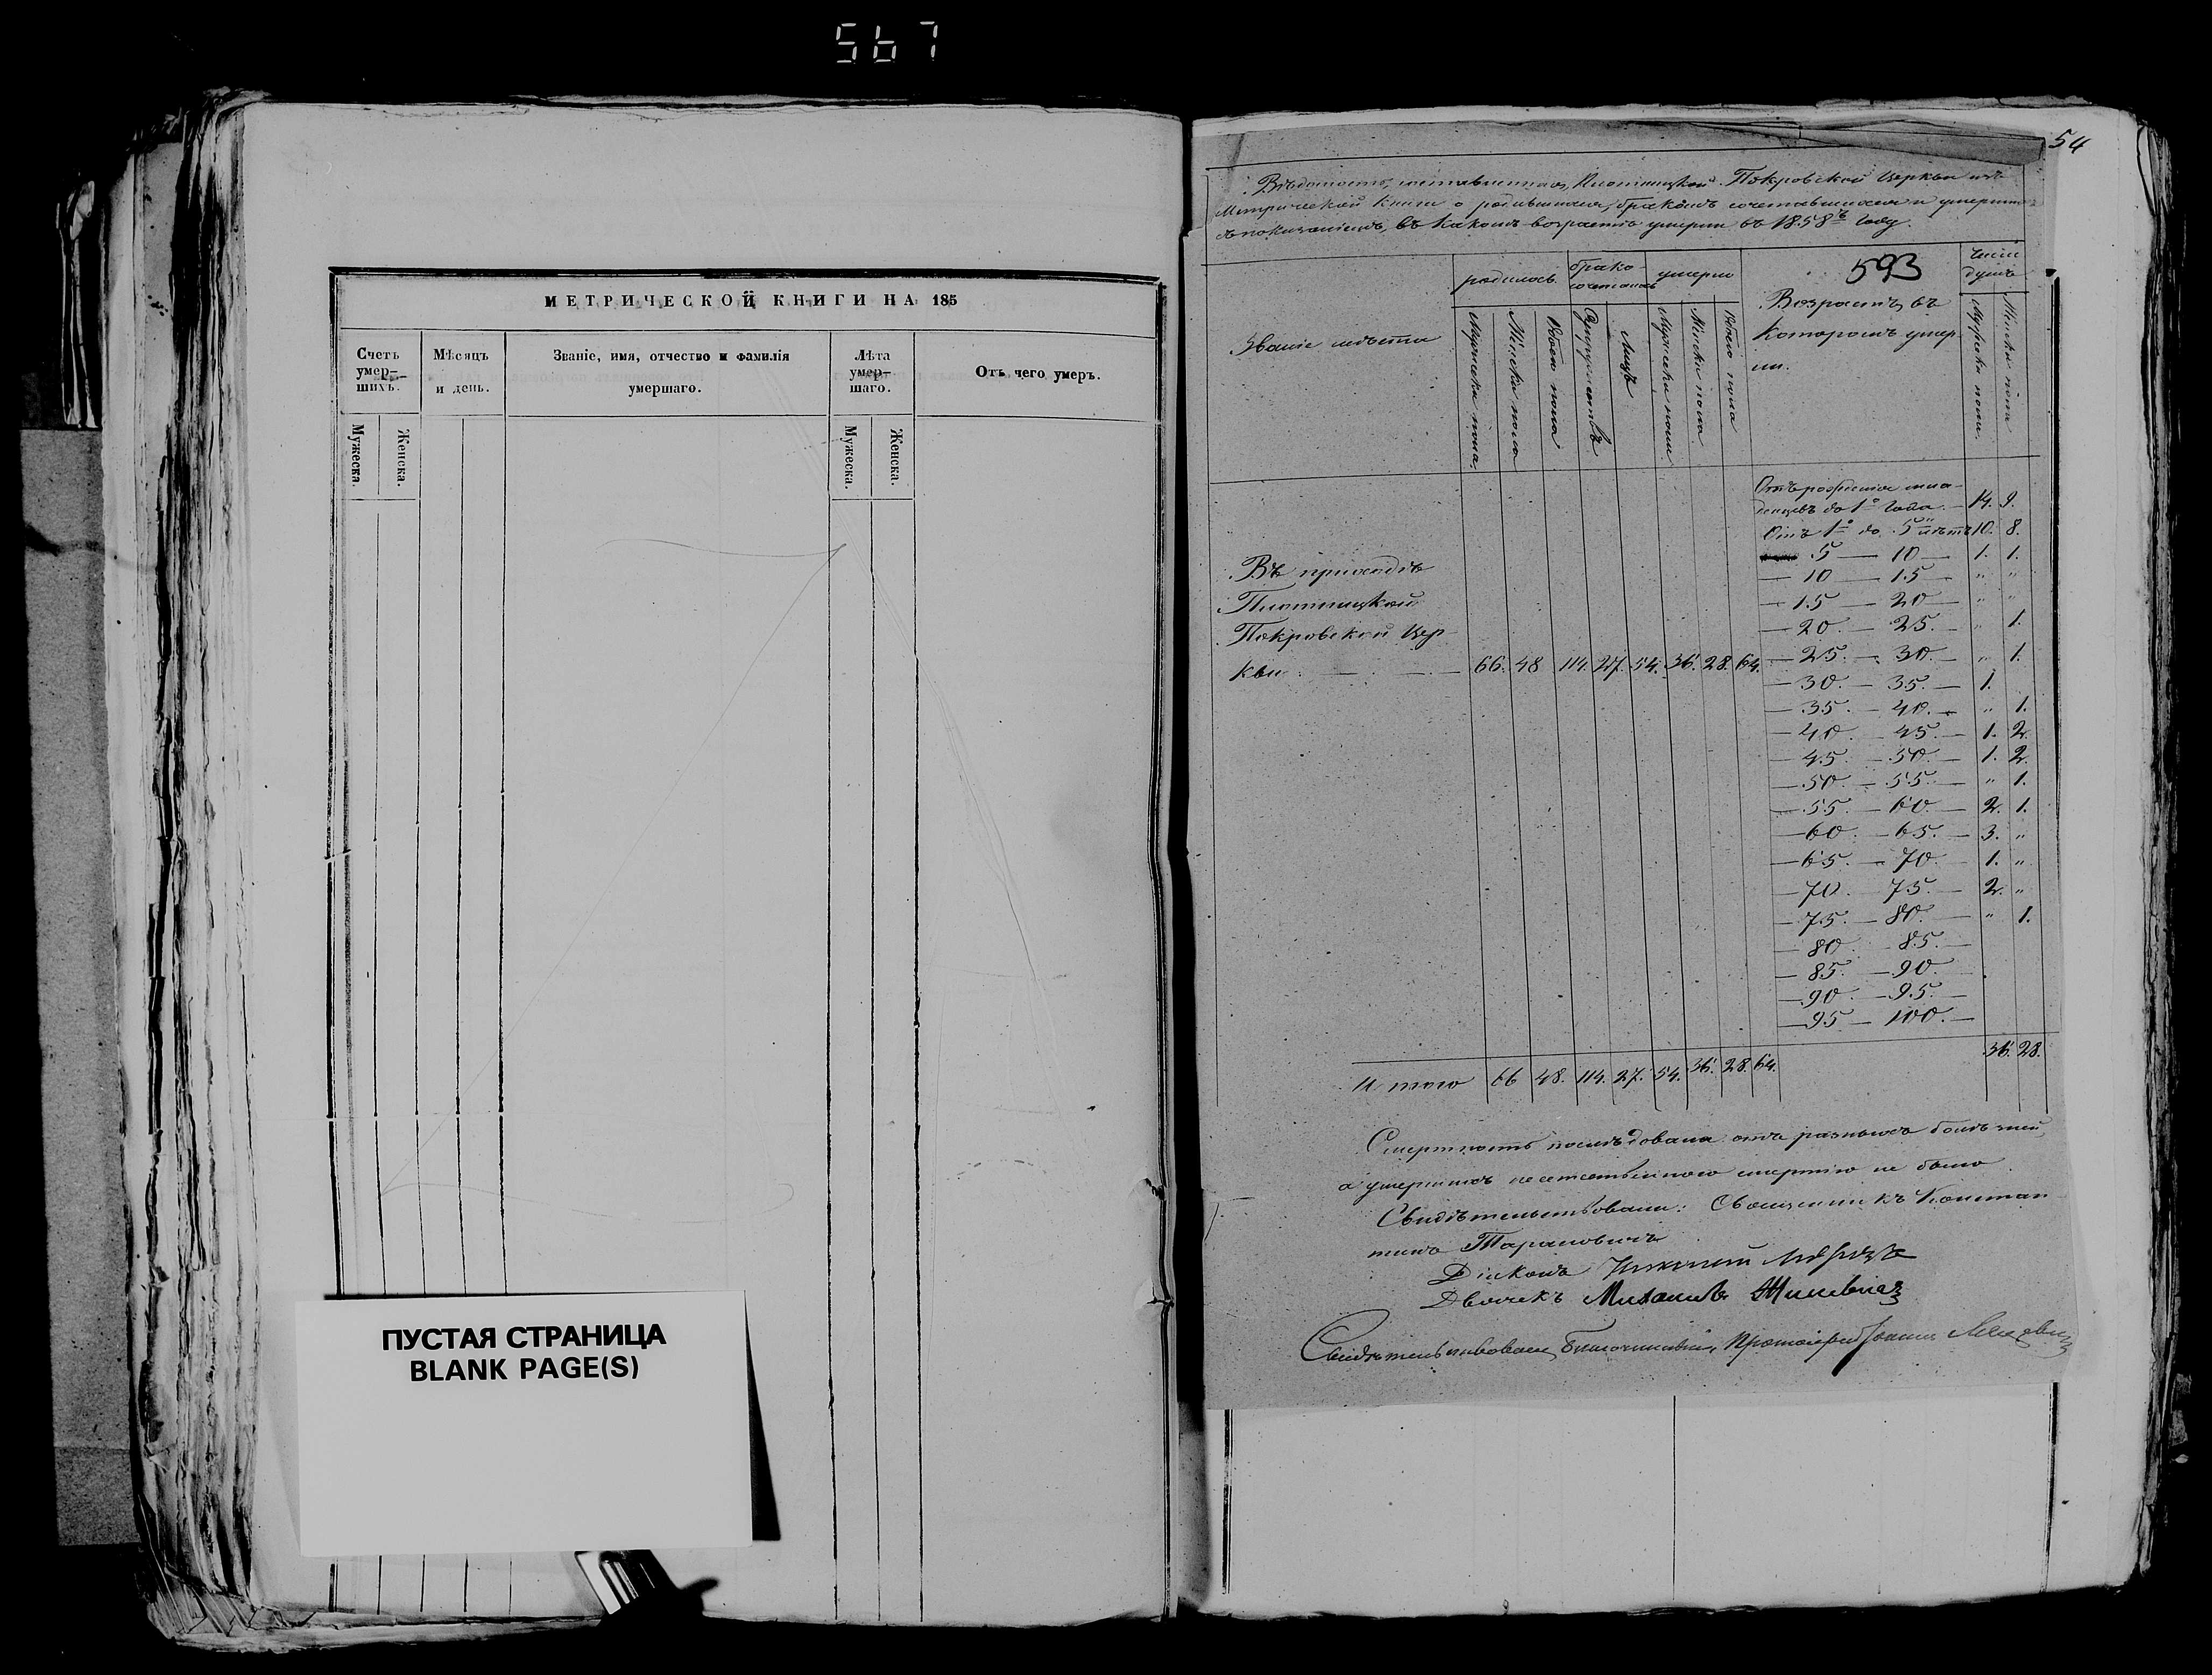 567
МЕТРИЧЕСКОЙ КНИГИ НА 185
Счетъ умер-шихъ.
Мѣсяцъ и день.
Званіе, имя, отчество и фамилія умершаго.
Лѣта умер-шаго.
Отъ чего умеръ.
Мужеска.
Женска.
Мужеска.
Женска.
ПУСТАЯ СТРАНИЦА
BLANK PAGE(S)
54
Вѣдомость, составленная, Плотницкой Покровской Церкви изъ
Метрической книги о родившихся, бракомъ сочетавшихся и умершихъ
съ показаніемъ, въ какомъ возрастѣ умерли въ 1858ъ году.
593
Званіе мѣста
родилось
брако-сочеталось
умерло
Возрастъ, въ
которомъ умер
ли.
Число душъ
Мужеска пола
Женска пола
Обоего пола
Супружествъ
Лицъ
Мужеска пола
Женска пола
Обоего пола
Мужеска пола
Женска пола
Отъ рожденія мла-
денцевъ до 1го года. — 14. 9.
Отъ 1го до 5 лѣтъ 10. 8.
5 — 10 — 1. 1.
— 10 — 15 — " "
— 15 — 20 — " "
— 20 — 25. — " 1.
— 25. — 30. — " 1.
— 30. — 35. — 1.
— 35. — 40. — " 1.
— 40. — 45. — 1. 2.
— 45. — 50. — 1. 2.
— 50. — 55. — " 1.
— 55. — 60. — 2. 1.
— 60. — 65. — 3. "
— 65. — 70. — 1. "
— 70. — 75. — 2. "
— 75. — 80. — " 1.
— 80. — 85. —
— 85. — 90. —
— 90. — 95. —
— 95 — 100. —
36. 28.
Въ приходѣ
Плотницкой
Покровской Цер
кви — 66. 48 114. 27. 54. 36. 28. 64.
Итого 66 48. 114. 27. 54. 36. 28. 64.
Смертность послѣдовала отъ разныхъ болѣзней,
а умершихъ неестественною смертію не было
Свидѣтельствовали: Священникъ Констан
тинъ Тарановичъ
Діаконъ
Дьячекъ Михаилъ Жилевичъ
Свидѣтельствовалъ Благочинный, Протоіерей Іоаннъ